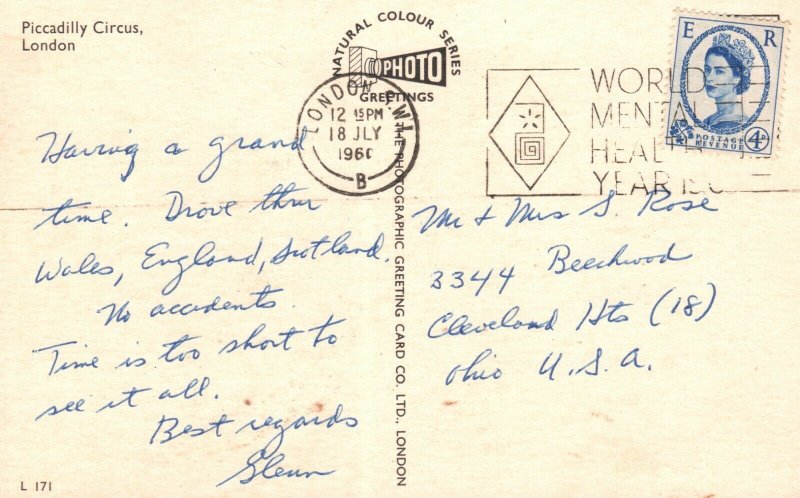 Piccadilly Circus,
London
NATURAL COLOUR SERIES
PHOTO
GREETINGS
LONDON S.W.1
12 15PM
18 JLY
1960
B
WORLD
MENTAL
HEALTH
YEAR 196
E R
POSTAGE
REVENUE
4D
Having a grand
time. Drove thru
Wales, England, Scotland.
No accidents.
Time is too short to
see it all.
Best regards
Glenn
THE PHOTOGRAPHIC GREETING CARD CO. LTD., LONDON
Mr + Mrs S. Rose
3344 Beechwood
Cleveland Hts (18)
Ohio U.S.A.
L 171